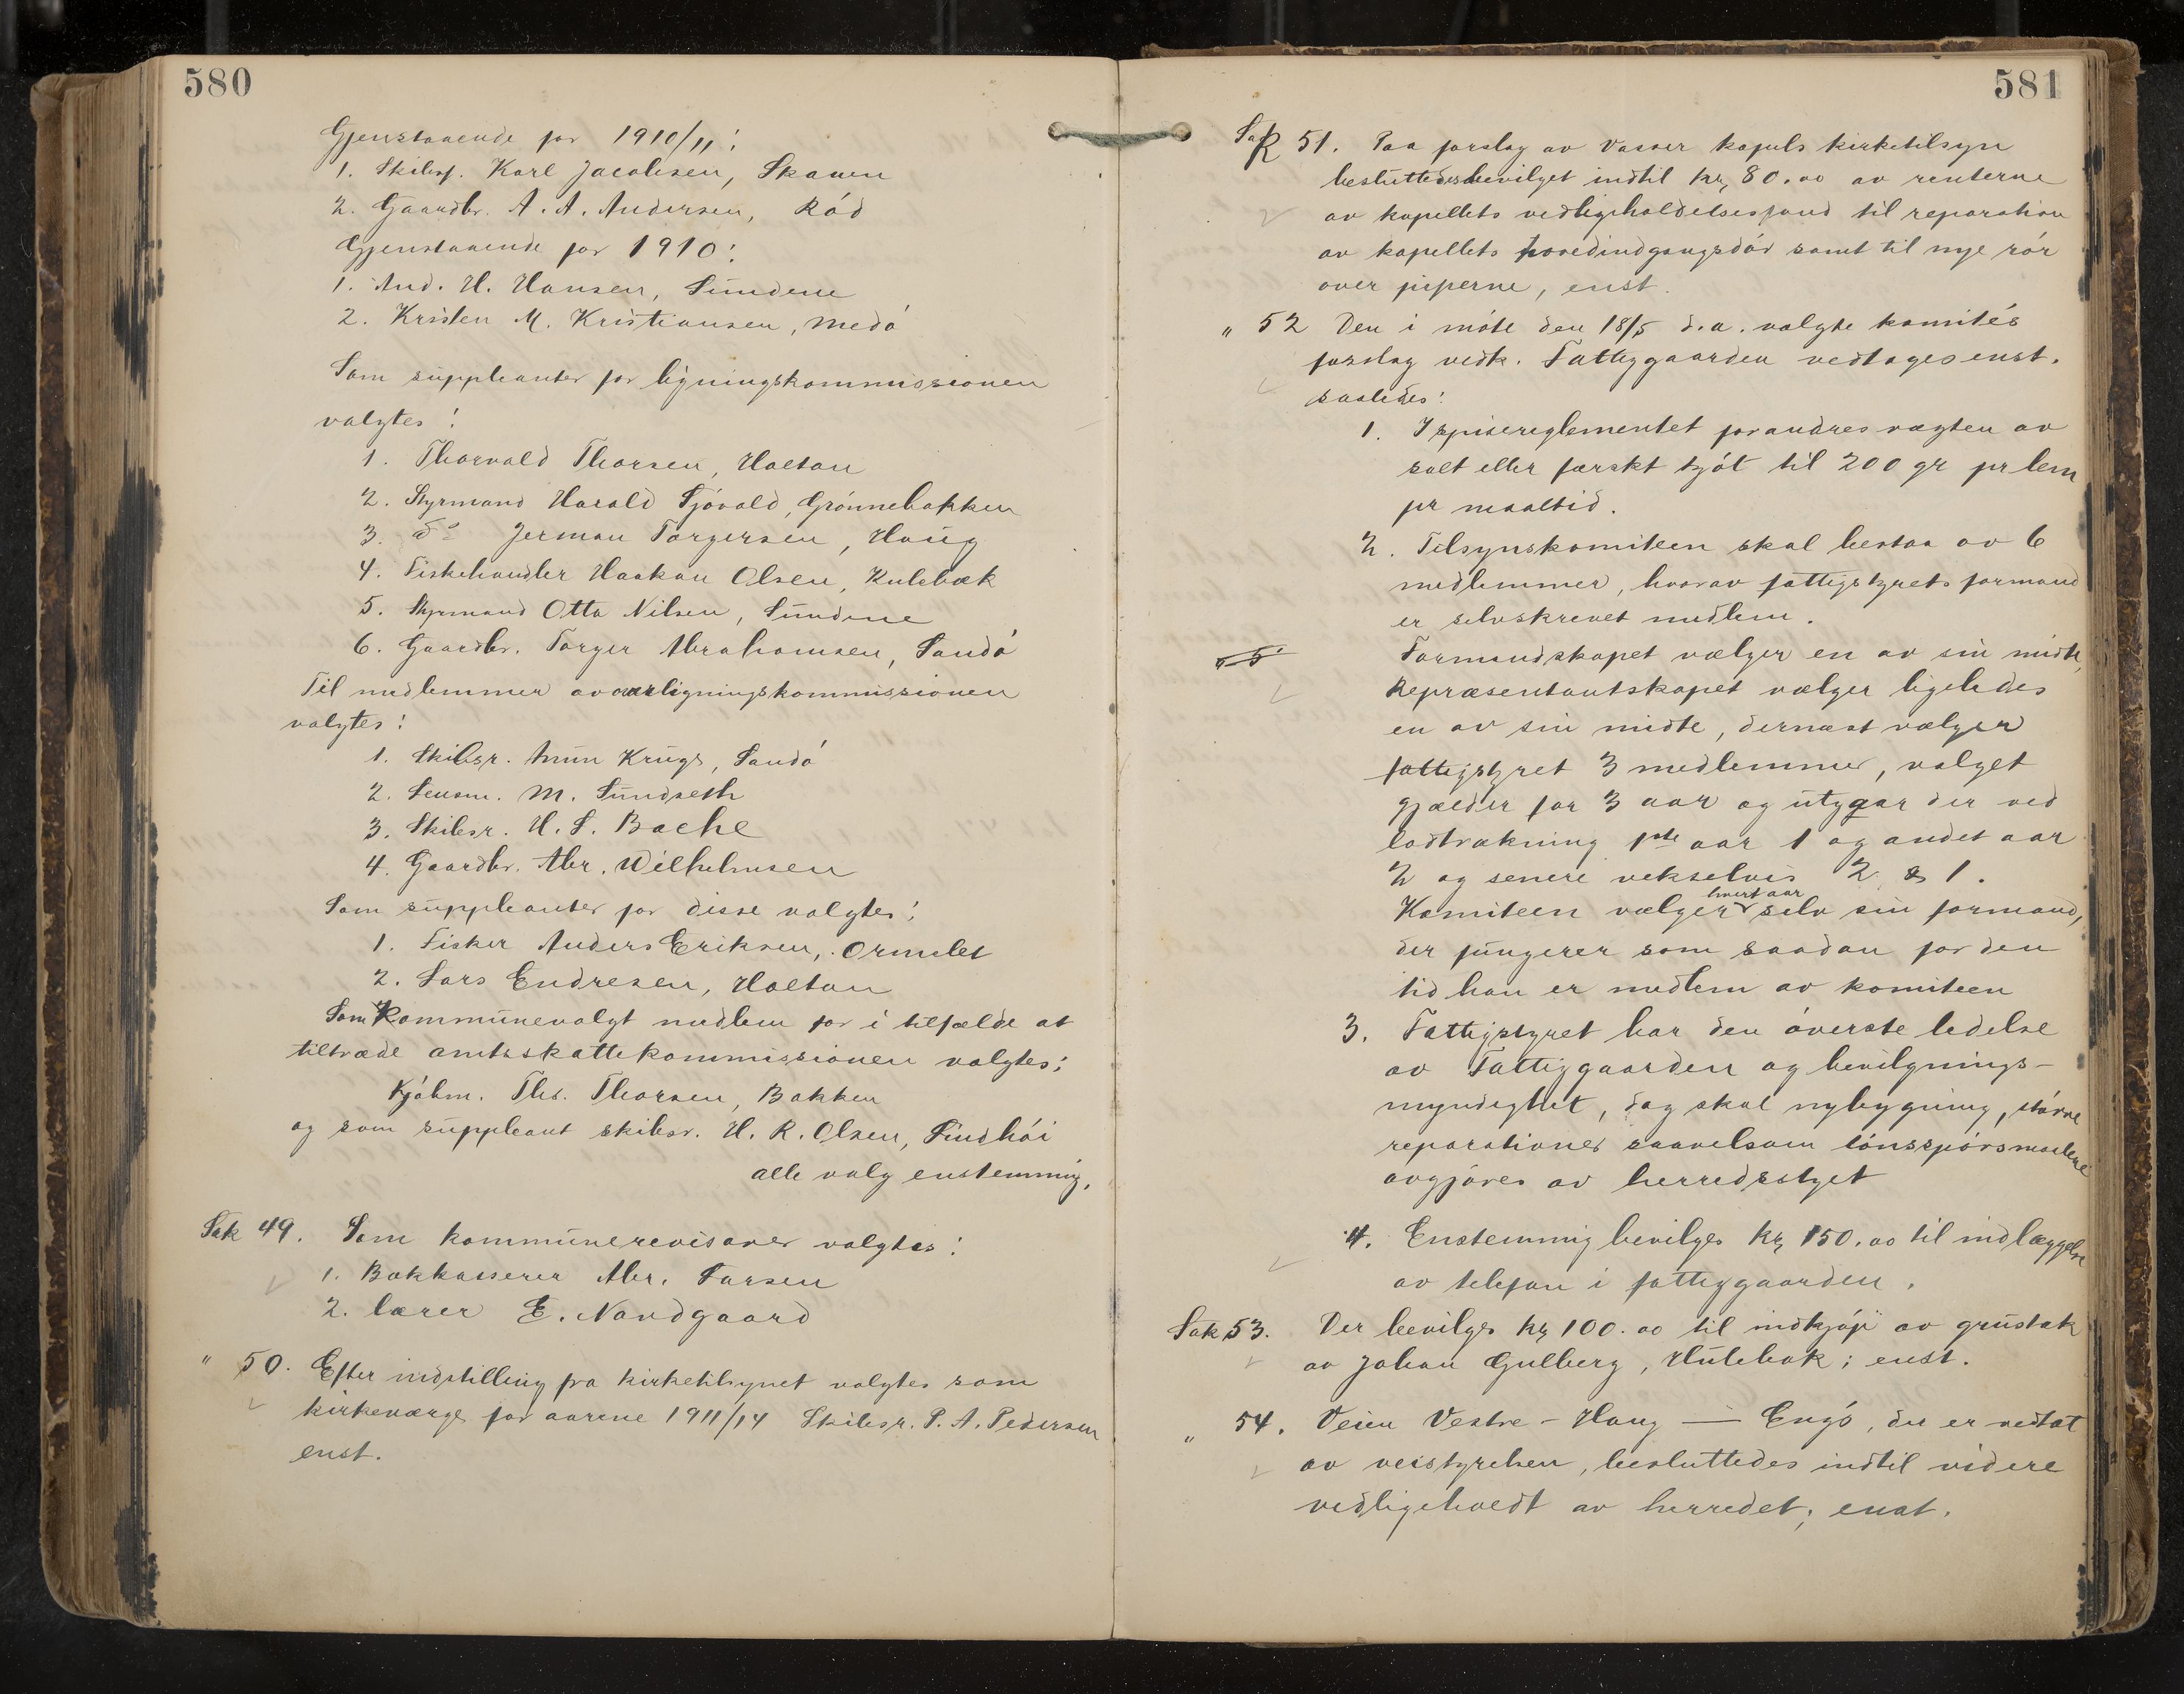 580
Gjenstaaende for 1910/11:
1. Skibsf. Karl Jacobsen, Skauen
2. Gaardbr. A. A. Andersen, Röd
Gjenstaaende for 1910:
1. And. H. Hansen, Sundene
2. Kristen M. Kristiansen, Medö
Som suppleanter for ligningskommissionen
valgtes:
1. Thorvald Thorsen, Holtan
2. Styrmand Harald Sjövold, Grönnebakken
3. do Jerman Torgersen, Haug
4. Fiskehandler Haakon Olsen, Kulebæk
5. Styrmand Otto Nilsen, Sundene
6. Gaardbr. Torger Abrahamsen, Sandö
Til medlemmer av overligningskommissionen
valgtes:
1. Skibsr. Anun Krugs, Sandö
2. Lensm. M. Sundseth
3. Skibsr. H. S. Bache
4. Gaardbr. Abr. Wilhelmsen
Som suppleanter for disse valgtes:
1. Fisker Anders Eriksen, Ormelet
2. Lars Endresen, Holtan
Som kommunevalgt medlem for i tilfælde at
tiltræde amtsskattekommissionen valgtes:
Kjöbm. Ths. Thorsen, Bakken
og som suppleant skibsr. H. R. Olsen, Lindhöi
alle valg enstemmig.
Sak 49. Som kommunerevisorer valgtes:
1. Bankkasserer Abr. Larsen
2. lærer E. Nordgaard
" 50. Efter indstilling fra kirketilsynet valgtes som
kirkeværge for aarene 1911/14 Skibsr. P. A. Pedersen
enst.
581
Sak 51. Paa forslag av Vasser kapels kirketilsyn
besluttedes bevilget indtil kr 80.00 av renterne
av kapellets vedligeholdelsesfond til reparation
av kapellets hovedindgangsdör samt til nye rör
over piperne, enst.
" 52 Den i möte den 18/5 d.a. valgte komités
forslag vedk. Fattiggaarden vedtages enst.
saaledes:
1. I spisereglementet forandres vægten av
salt eller færskt kjöt til 200 gr pr lem
pr maaltid.
2. Tilsynskomiteen skal bestaa av 6
medlemmer, hvorav fattigstyrets formand
er selvskrevet medlem.
" 5
Formandskapet vælger en av sin midte,
Repræsentantskapet vælger ligeledes
en av sin midte, dernæst vælger
fattigstyret 3 medlemmer, valget
gjælder for 3 aar og utgaar der ved
lodtrækning 1ste aar 1 og andet aar
2 og senere vekselvis 2 & 1.
Komiteen vælger hvert aar selv sin formand,
der fungerer som saadan for den
tid han er medlem av komiteen
3. Fattigstyret har den överste ledelse
av Fattiggaarden og bevilgnings-
myndighet, dog skal nybygning, större
reparationer saavelsom lönsspörsmaalene
avgjöres av herredsstyret
4. Enstemmig bevilges kr 150.00 til indlæggelse
av telefon i fattiggaarden.
Sak 53. Der bevilges kr 100.00 til indkjöp av grustak
av Johan Gulberg, Hulebak; enst.
" 54. Veien Vestre-Haug — Engö, der er vedtat
av veistyrelsen, besluttedes indtil videre
vedligeholdt av herredet; enst.